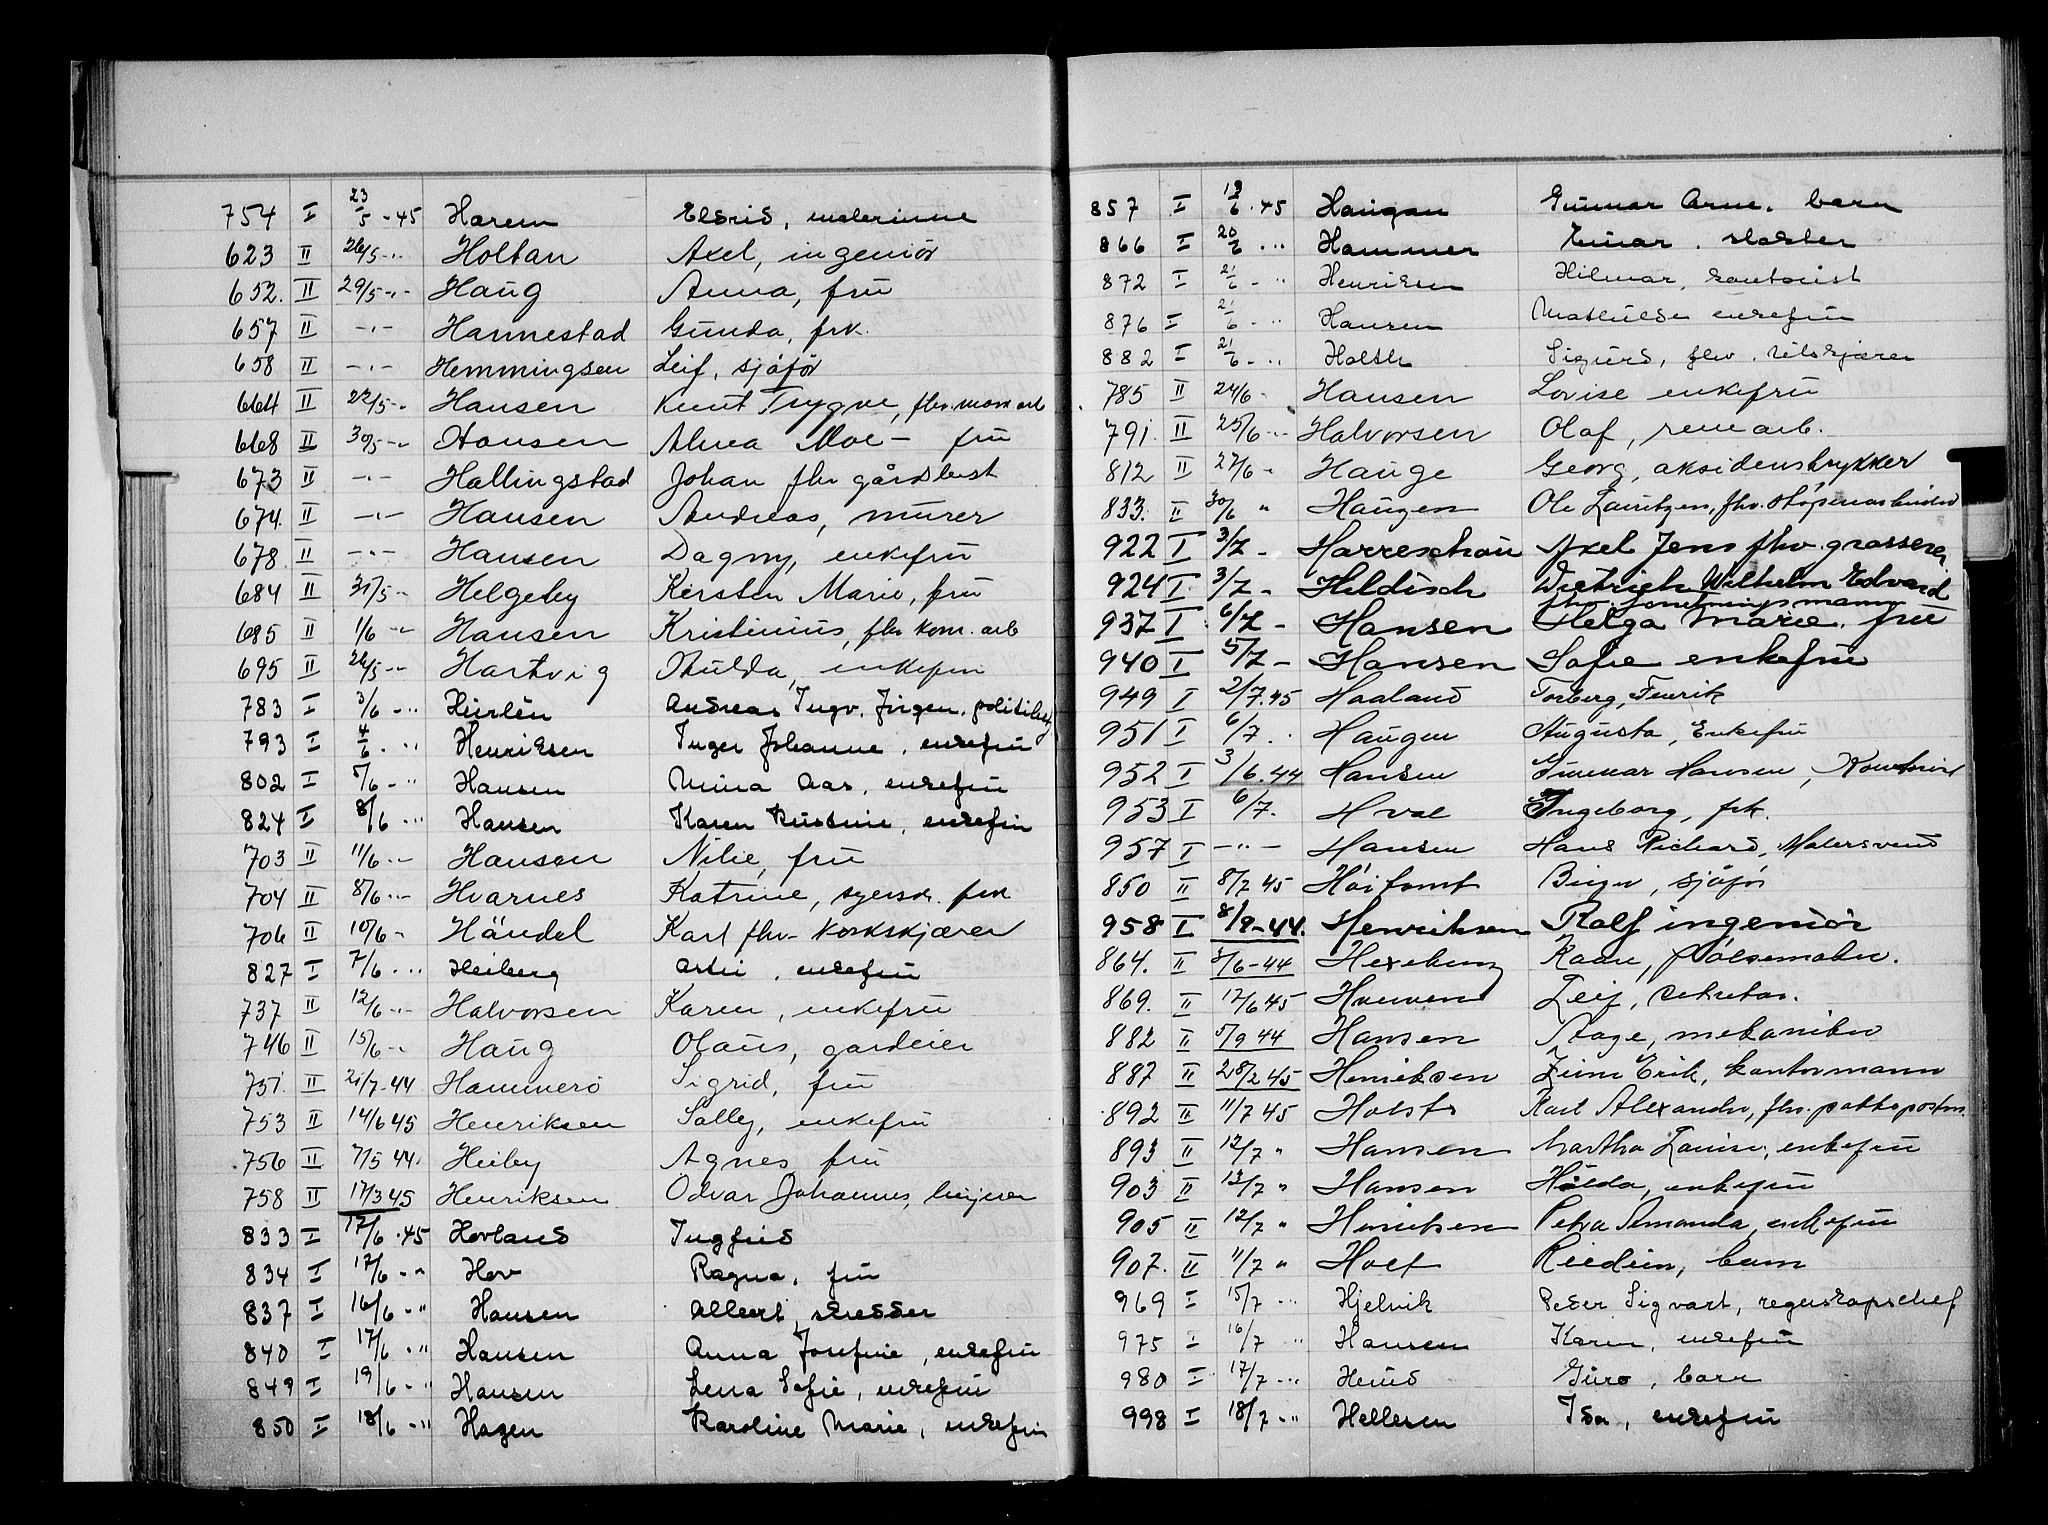 754 I 23/5-45 Harem Eldrid, malerinne
623 II 26/5-"- Holtan Axel, ingeniör
652. II 29/5-"- Haug Anna, fru
657 II -"- Hannestad Gunda, frk.
658 II -"- Hemmingsen Leif, sjåför
664 II 22/5-"- Hansen Knut Trygve, fhv. mask arb
668 II 30/5-"- Hansen Alma Moe- fru
673 II -"- Hallingstad Johan fhv gårdbest
674. II -"- Hansen Andreas, murer
678. II -"- Hansen Dagny, enkefru
684 II 31/5-"- Helgeby Kirsten Marie, fru
685 II 1/6 -"- Hansen Kristinius, fhv kom. arb
695 II 26/5-"- Hartvig Hulda, enkefru
783 I 3/6 -"- Heirlén Andreas Ingv. Jörgen, politibetj
793 I 4/6 "- Henriksen Inger Johanne, enkefru
802 I 5/6 -"- Hansen Mina Aas, enkefru
824 I 8/6 -"- Hansen Karen Kristine, enkefru
703 II 11/6 -"- Hansen Nilie, fru
704 II 8/6 -"- Hvarnes Katrine, syersk. frk
706 II 10/6 - Händel Karl fhv- korkskjærer
827 I 7/6 -"- Heiberg enkefru
737 II 12/6 -"- Halvorsen Karen, enkefru
746 II 15/6 -"- Haug Olaus, gardeier
751. II 21/7-44 Hammerö Sigrid, fru
753 II 14/6 45 Henriksen Sally, enkefru
756 II 7/5 44. Heiby Agnes fru
758 II 17/3 45 Henriksen Odvar Johannes,
833 I 17/6.45 Hovland Ingfrid
834 I 17/6 -"- Hov Ragna, fru
837 I 16/6 -"- Hansen Albert, skredder
840 I 17/6 -"- Hansen Anna Josefine, enkefru
849 I 19/6 -"- Hansen Lena Sofie, enkefru
850 I 18/6 -"- Hagen Karoline Marie, enkefru
857 I 19/6.45 Haugan Gunnar Arne, barn
866 I 20/6 -"- Hammer Einar, slakter
872 I 21/6 -"- Henriksen Hilmar, kontorist
876 I 21/6 -"- Hansen Mathilde enkefru
882 I 21/6 -"- Holth Sigurd, fhv.
785 II 24/6 - Hansen Lovise enkefru
791. II 25/6 -"- Halvorsen Olaf, renn arb.
812 II 27/6 - Hauge Georg, aksidenstrykker
833. II 30/6 " Haugen Ole Lauritzen, fhv. støperiarbeider
922 I 3/7 - Harreschou Axel Jens fhv. grosserer
924 I 3/7 - Heldisch Dietrich Wilhelm Edvard
fhv. forretningsmann
937 I 6/7 - Hansen Helga Marie. fru
940 I 5/7 - Hansen Sofie enkefru
949 I 2/7.45 Haaland Torberg, Fenrik
951 I 6/7. Haugen Augusta, Enkefru
952 I 3/6.44 Hansen Gunnar Hansen, Kontorist
953 I 6/7. Hval Ingeborg, frk.
957 I -"- Hansen Hans Richard, Malersvend
850 II 8/7 45 Höitomt Birger, sjåför
958 I 8/9-44. Henriksen Rolf ingeniör
864. II 5/6-44 Hexeberg Kaare, pölsemaker.
869. II 17/6 45 Leif, sekretær.
882 II 5/9 44 Hansen Aage, mekaniker
887 II 28/2 45 Henriksen Finn Erik, kontormann
892 II 11/7 45 Holst Karl Alexander, fhv. pakkepostm
893 II 12/7 " Hansen Martha Louise, enkefru
903 II 13/7 " Hansen Hilda, enkefru
905 II 12/7 " Henriksen Petra Amanda, enkefru
907. II 11/7 " Hoel barn
969 I 15/7 -"- Hjelvik Peder Sigvart, regnskapschef
975 I 16/7 "- Hansen Karen, enkefru
980 I 17/7 -"- Herud Guro, barn
998 I 18/7 -"- Hellesen Ida, enkefru